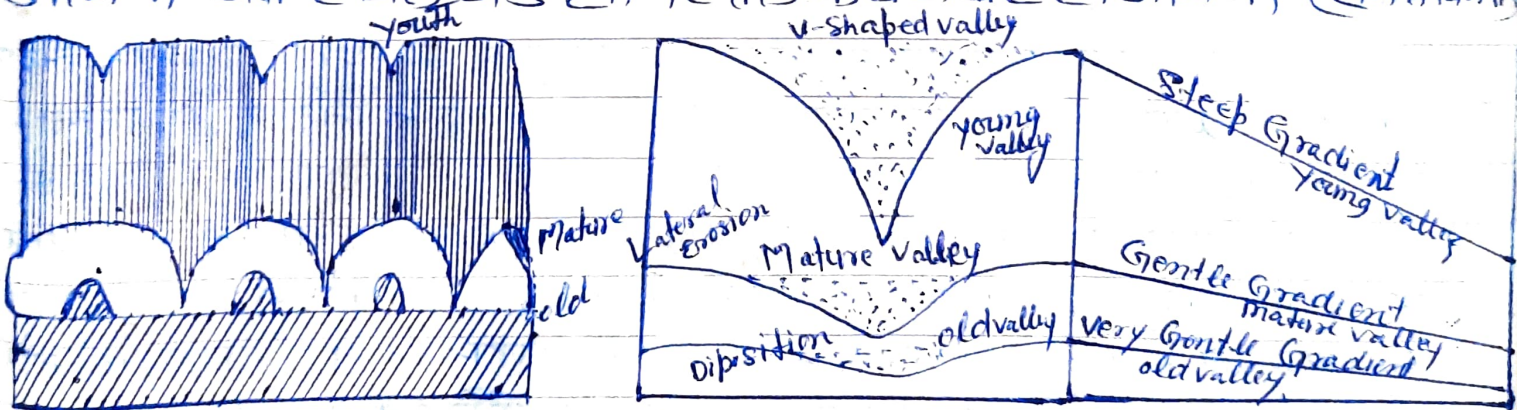 youth
Mature
old
v-shaped valley
young
valley
Lateral
Erosion
Mature valley
old valley
Diposition
Steep Gradient
young valley
Gentle Gradient
mature valley
very Gentle Gradient
old valley